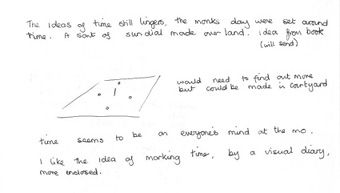 The ideas of time still lingers, the monks day were set around
time. A sort of sun dial made our land. idea from book
(will send)
would need to find out more
but could be made in courtyard
time seems to be on everyone's mind at the mo.
I like the idea of marking time, by a visual diary,
more enclosed.